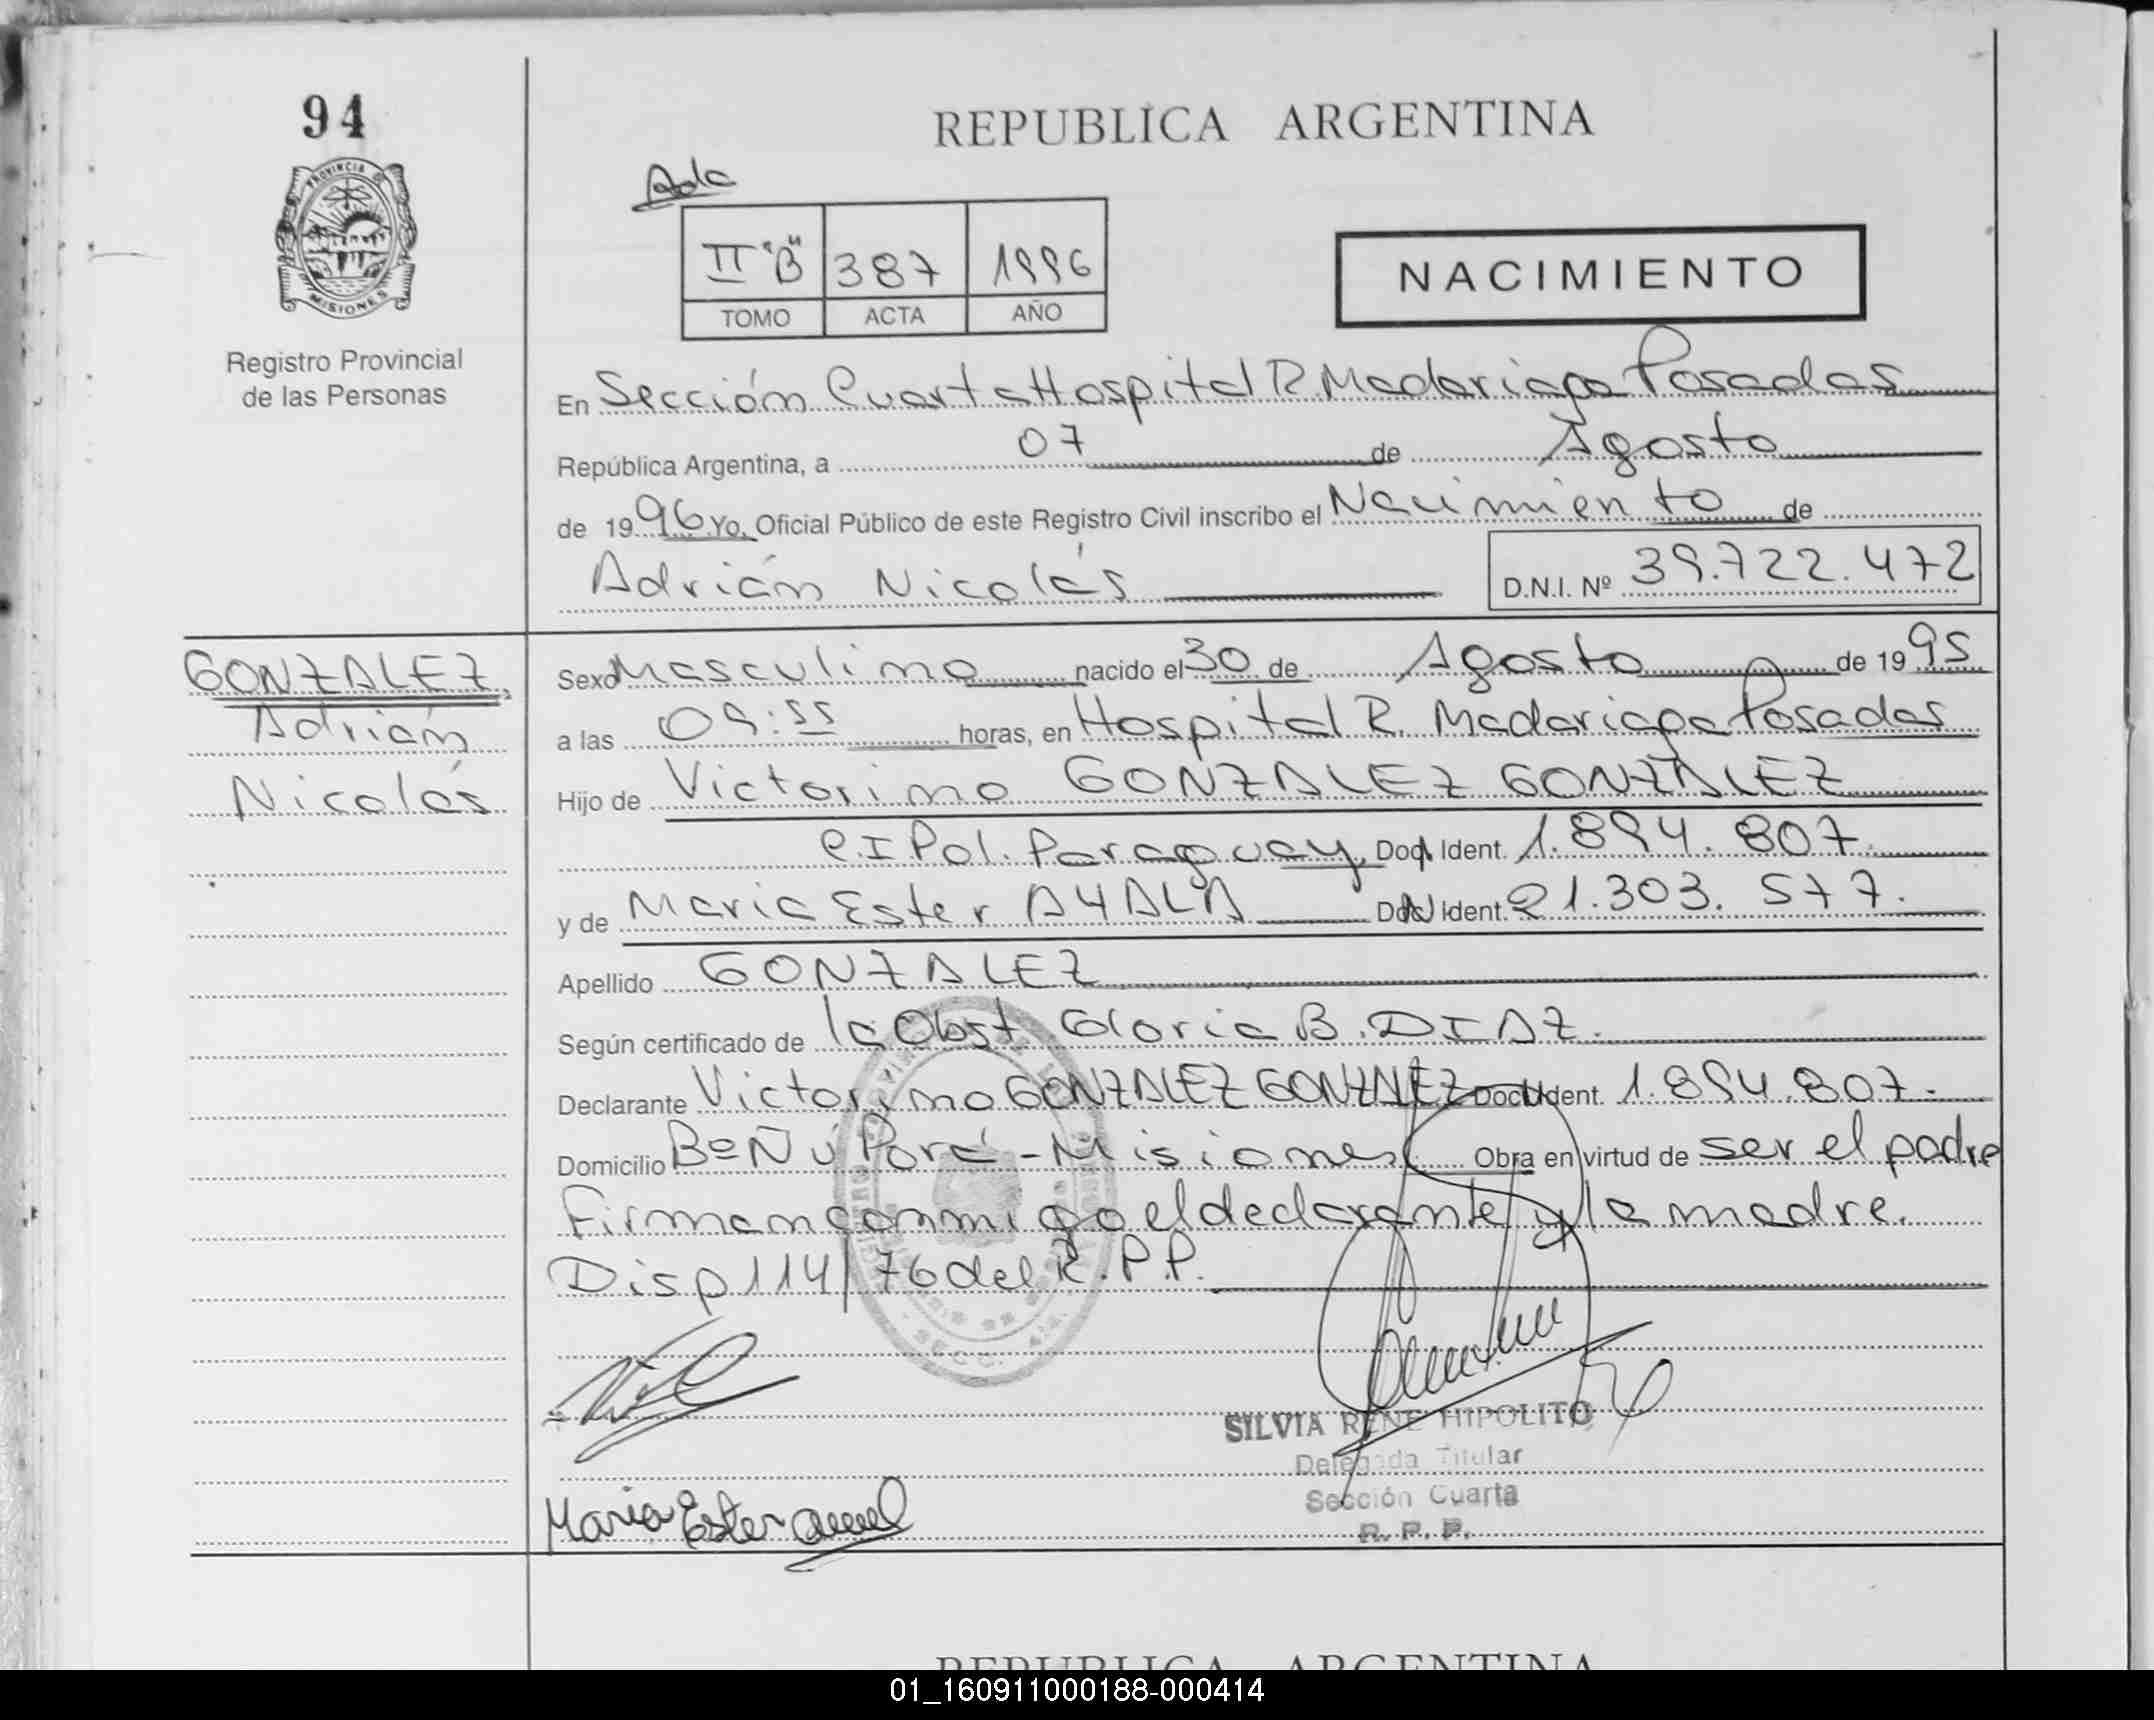 94
REPUBLICA ARGENTINA
PROVINCIA D
MISIONES
Registro Provincial
de las Personas
II "B" 387 1996
TOMO ACTA AÑO
NACIMIENTO
En Sección Cuarta Hospital R. Madariaga Posadas
República Argentina, a 07 de Agosto
de 1996 Yo, Oficial Público de este Registro Civil inscribo el Nacimiento de
Adrián Nicolás D.N.I. Nº 39.722.472
GONZALEZ,
Adrián
Nicolás
Sexo Masculino nacido el 30 de Agosto de 1995
a las 09:55 horas, en Hospital R. Madariaga Posadas
Hijo de Victorino GONZALEZ GONZALEZ
C.I Pol. Paraguay, Doc Ident. 1.894.807.
y de Maria Ester AYALA Doc Ident. 21.303.577.
Apellido GONZALEZ
Según certificado de la Obst. Gloria B. DIAZ.
Declarante Victorino GONZALEZ GONZALEZ Doc Ident. 1.894.807.
Domicilio Bº Ñu Porá - Misiones Obra en virtud de ser el padre
Firman conmigo el declarante y la madre.
Disp 114/76 del R.P.P.
SILVIA RENE HIPOLITO
Delegada Titular
Sección Cuarta
R. P. P.
Maria Ester
REPUBLICA ARGENTINA
01_160911000188-000414